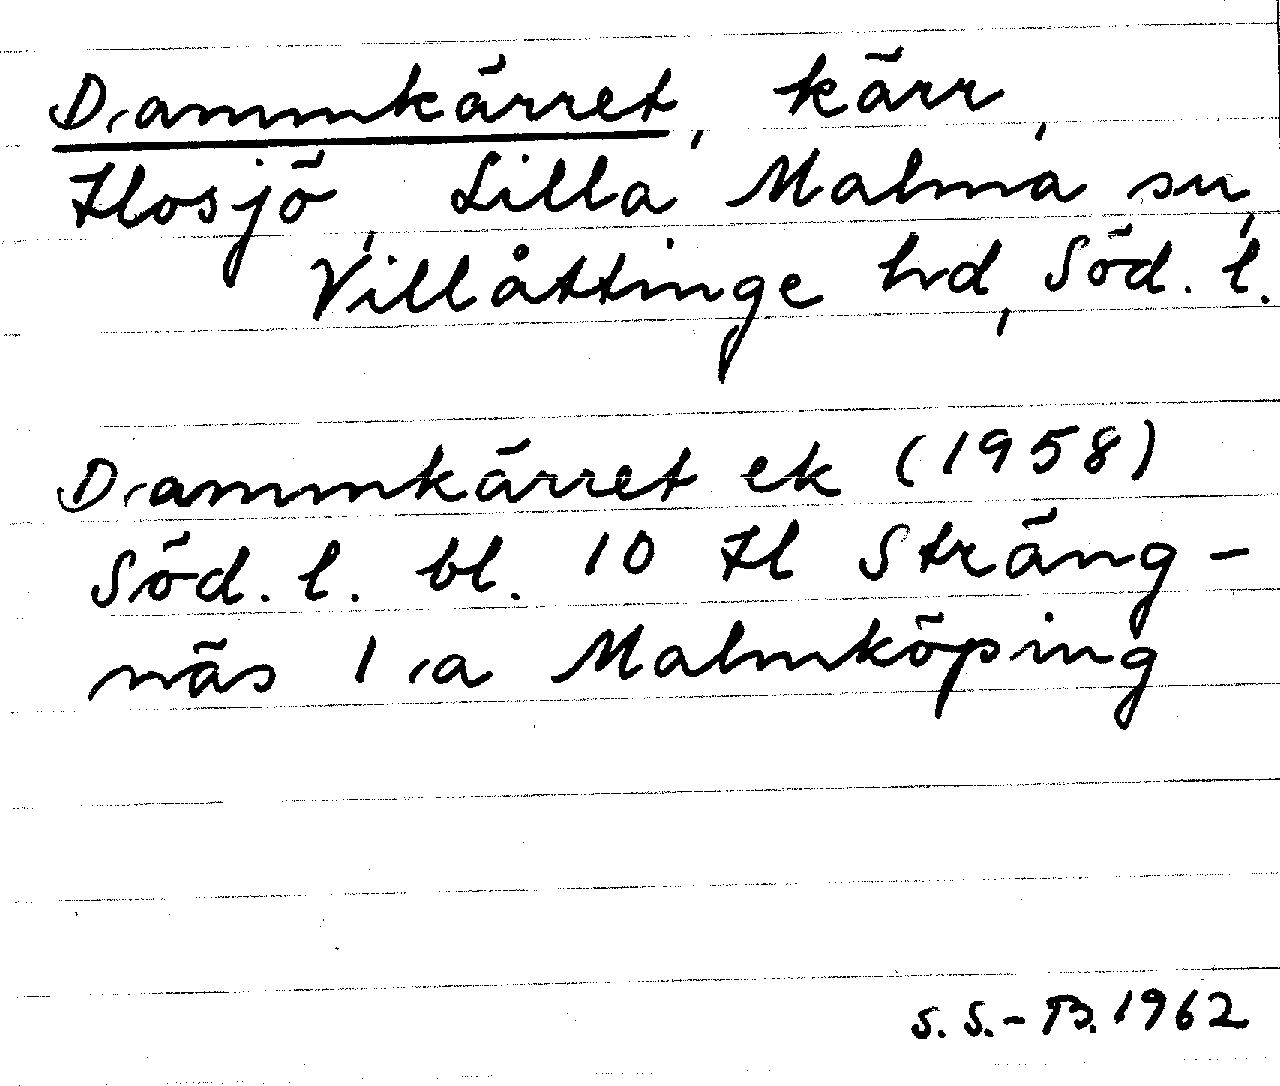 Dammkärret, kärr,
Hosjö, Lilla Malma sn,
Villåttinge hd, Söd. l.
Dammkärret ek (1958)
Söd. l. bl. 10 H Sträng-
näs 1 a Malmköping
S. S.-B. 1962